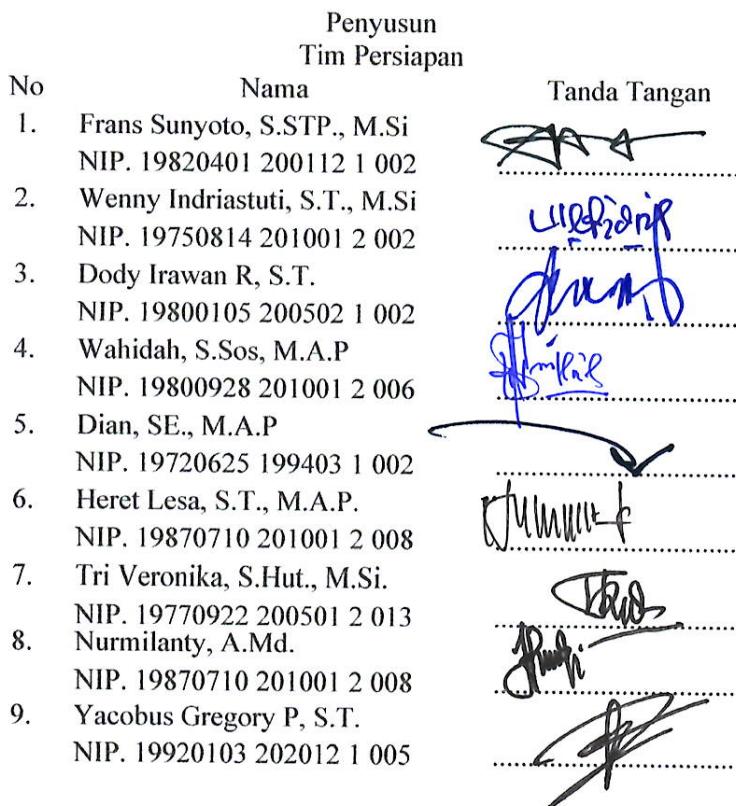 Penyusun
Tim Persiapan
No Nama Tanda Tangan
1. Frans Sunyoto, S.STP., M.Si
NIP. 19820401 200112 1 002
2. Wenny Indriastuti, S.T., M.Si
NIP. 19750814 201001 2 002
3. Dody Irawan R, S.T.
NIP. 19800105 200502 1 002
4. Wahidah, S.Sos, M.A.P
NIP. 19800928 201001 2 006
5. Dian, SE., M.A.P
NIP. 19720625 199403 1 002
6. Heret Lesa, S.T., M.A.P.
NIP. 19870710 201001 2 008
7. Tri Veronika, S.Hut., M.Si.
NIP. 19770922 200501 2 013
8. Nurmilanty, A.Md.
NIP. 19870710 201001 2 008
9. Yacobus Gregory P, S.T.
NIP. 19920103 202012 1 005